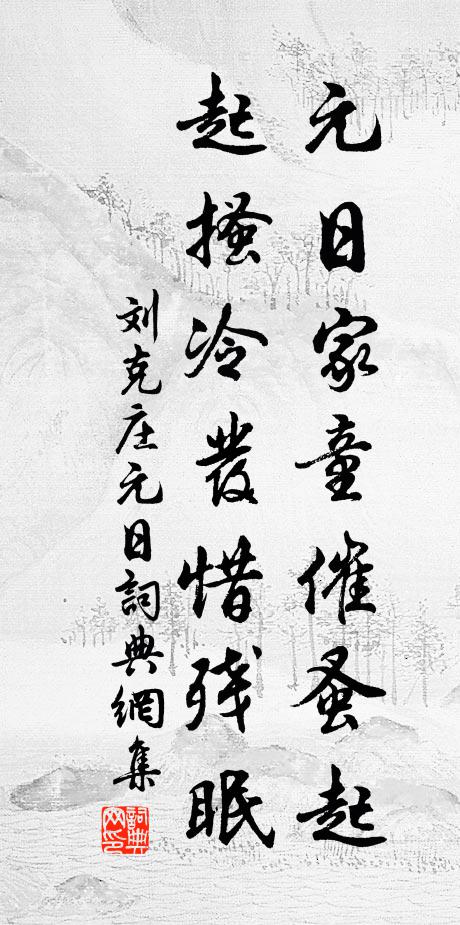 元日家童催蚤起
起搔冷發惜残眠
刘克庄元日詞典網集
詞典网印